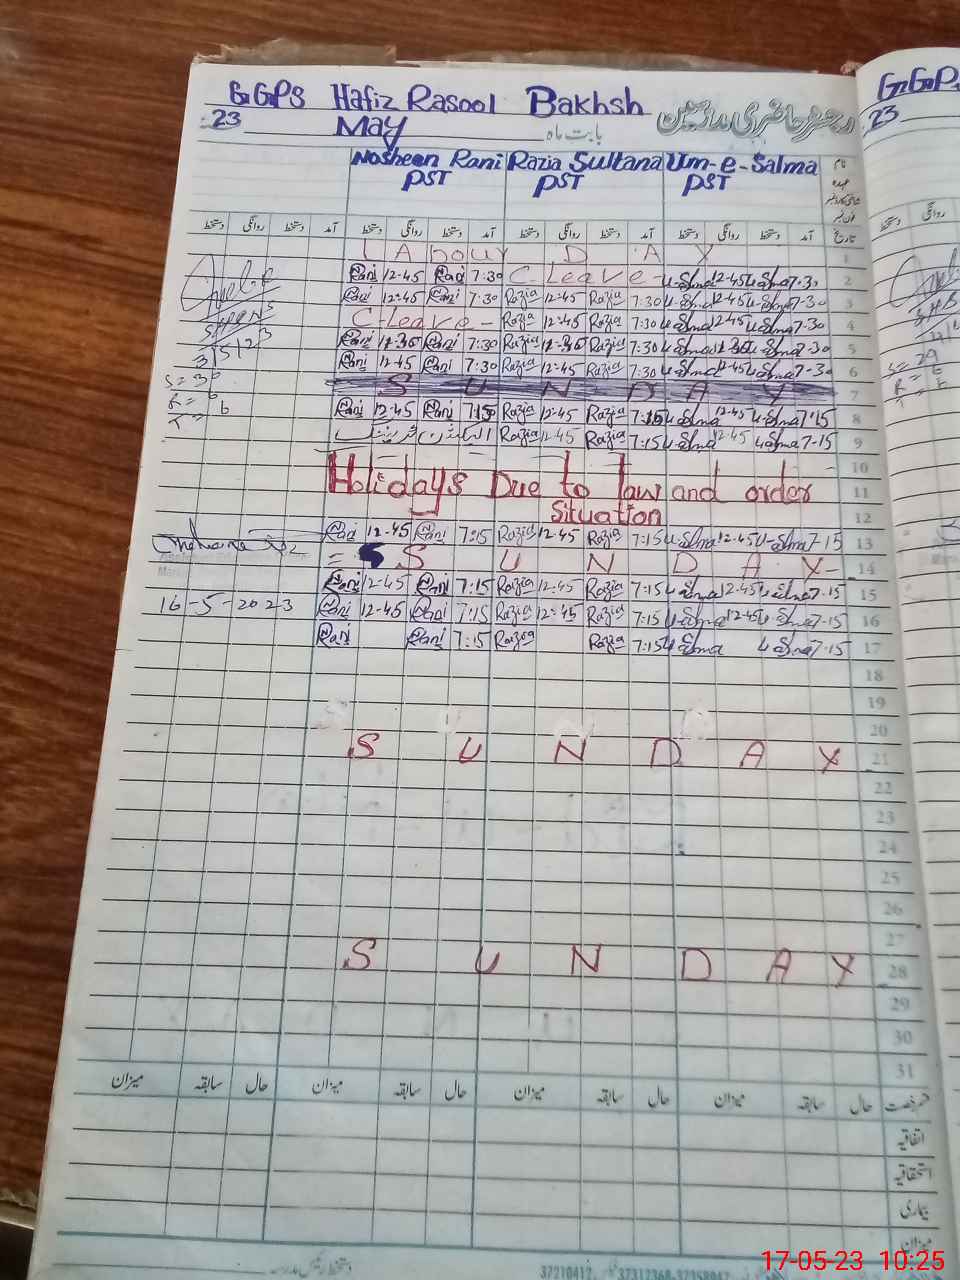 GGPS Hafiz Rasool Bakhsh رجسٹر حاضری ملازمین
23 May بابت ماہ
Nosheen Rani Razia Sultana Um-e-Salma نام
PST PST PST عہدہ
دستخط روانگی دستخط آمد دستخط روانگی دستخط آمد دستخط روانگی دستخط آمد دستخط روانگی دستخط آمد تاریخ
Labour DAY 1
Rani 12-45 Rani 7:30 C-Leave- u-Salma 12-45 u-Salma 7-30 2
Rani 12-45 Rani 7:30 Razia 12-45 Razia 7:30 u-Salma 12-45 u-Salma 7-30 3
C-Leave- Razia 12-45 Razia 7:30 u-Salma 12-45 u-Salma 7-30 4
Rani 12-30 Rani 7:30 Razia 12-30 Razia 7:30 u-Salma 12-30 u-Salma 7-30 5
315123
Rani 12-45 Rani 7:30 Razia 12-45 Razia 7:30 u-Salma 12-45 u-Salma 7-30 6
SUNDAY 7
Rani 12-45 Rani 7:15 Razia 12-45 Razia 7:15 u-Salma 12-45 u-Salma 7-15 8
الیکشن ٹریننگ Razia 12-45 Razia 7:15 u-Salma 12-45 u-Salma 7-15 9
10
Holidays Due to law and order 11
Situation 12
Rani 12-45 Rani 7:15 Razia 12-45 Razia 7:15 u-Salma 12-45 u-Salma 7-15 13
= S SUNDAY- 14
Rani 12-45 Rani 7:15 Razia 12-45 Razia 7:15 u-Salma 12-45 u-Salma 7-15 15
16-5-2023 Rani 12-45 Rani 7:15 Razia 12-45 Razia 7:15 u-Salma 12-45 u-Salma 7-15 16
Rani Rani 7:15 Razia Razia 7:15 u-Salma u-Salma 7-15 17
18
19
20
SUNDAY 21
22
23
24
25
26
27
SUNDAY 28
29
30
31
میزان سابقہ حال میزان سابقہ حال میزان سابقہ حال میزان سابقہ حال قسم رخصت
اتفاقیہ
استحقاقیہ
بیماری
میزان
دستخط رئیس مدرسہ
37210412, 37312368-37358047
17-05-23 10:25
GGPS
23